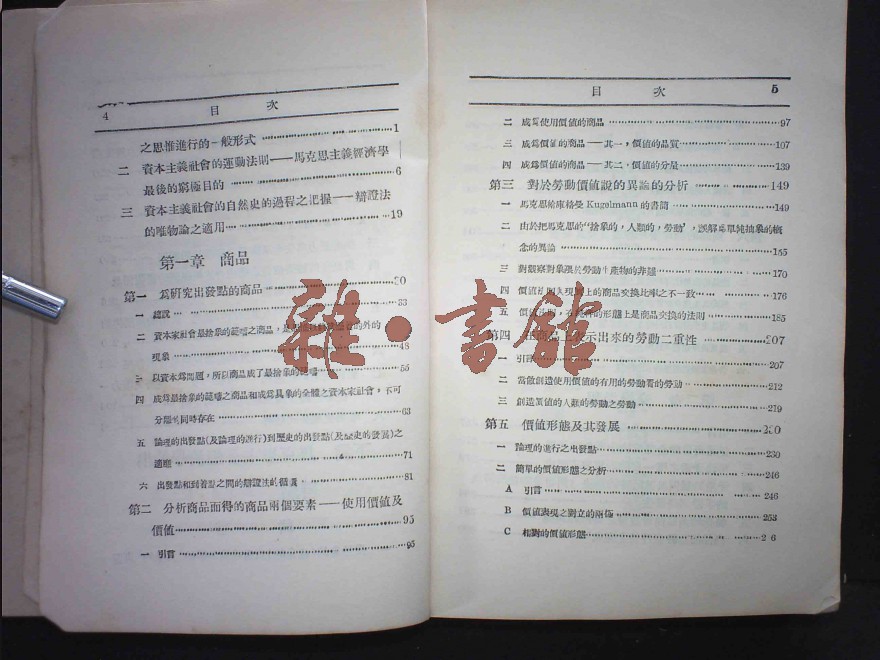 4 目 次
之思惟進行的一般形式 1
二 資本主義社會的運動法則——馬克思主義經濟學
最後的窮極目的 6
三 資本主義社會的自然史的過程之把握——辯證法
的唯物論之適用 19
第一章 商品
第一 爲研究出發點的商品
一 總說 33
二 資本家社會最捨象的範疇之商品，
現象 48
三 以資本爲問題，所以商品成了最捨象的範疇 55
四 成爲最捨象的範疇之商品和成爲具象的全體之資本家社會，不可
分離的同時存在 63
五 論理的出發點(及論理的進行)到歷史的出發點(及歷史的發展)之
適應 71
六 出發點和到着點之間的辯證法的 81
第二 分析商品而得的商品兩個要素——使用價値及
價値 95
一 引言 95
目 次 5
二 成爲使用價値的商品 97
三 成爲價値的商品——其一，價値的品質 107
四 成爲價値的商品——其二，價値的分量 139
第三 對於勞動價値說的異論的分析 149
一 馬克思給庫格曼 Kugelmann 的書簡
二 由於把馬克思的「捨象的，人類的，勞動」，誤解爲單純抽象的概
念的異論 155
三 對觀察對象限於勞動生產物的非難 170
四 價値法則與現實上的商品交換比率之不一致 176
五 價値法則，在 的形態上是商品交換的法則 185
第四 在商品上表示出來的勞動二重性 207
一 引言 207
二 當做創造使用價値的有用的勞動看的勞動 212
三 創造價値的人類的勞動之勞動 219
第五 價値形態及其發展 230
一 論理的進行之出發點 230
二 簡單的價値形態之分析 246
A 引言 246
B 價値表現之對立的兩極 253
C 相對的價値形態
雜·書館